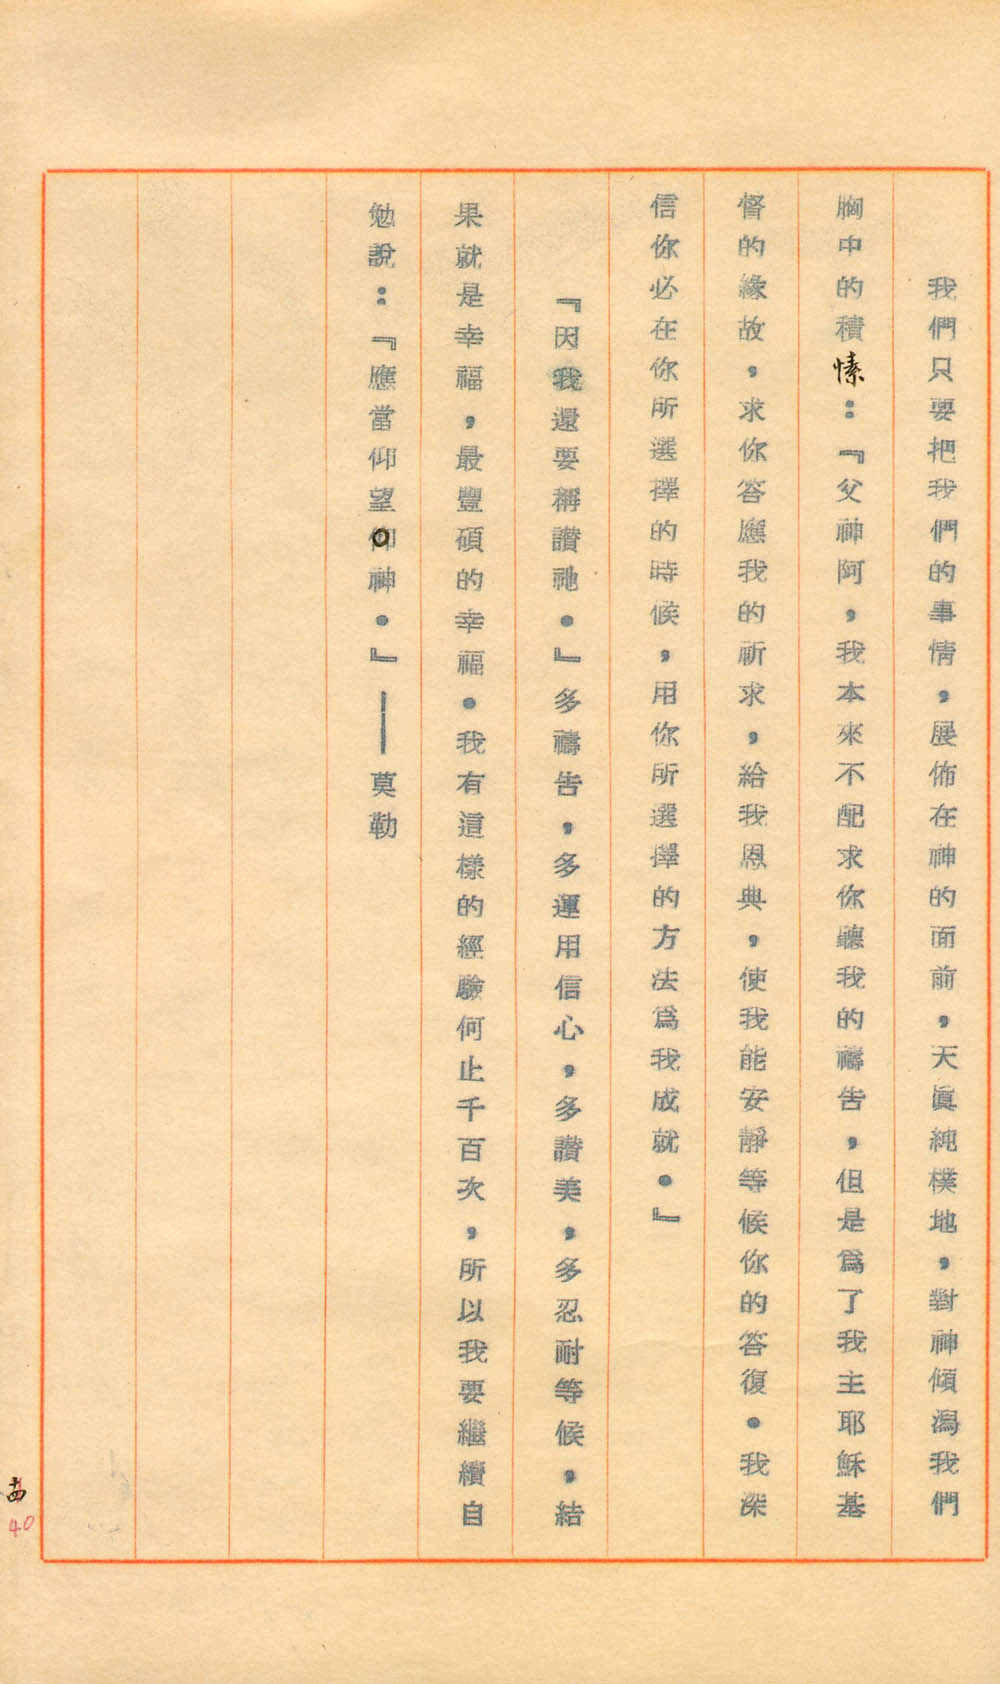 我們只要把我們的事情，展佈在神的面前，天眞純樸地，對神傾瀉我們
胸中的積愫：『父神阿，我本來不配求你聽我的禱告，但是爲了我主耶穌基
督的緣故，求你答應我的祈求，給我恩典，使我能安靜等候你的答復。我深
信你必在你所選擇的時候，用你所選擇的方法爲我成就。』
『因我還要稱讚祂。』多禱告，多運用信心，多讚美，多忍耐等候，結
果就是幸福，最豐碩的幸福。我有這樣的經驗何止千百次，所以我要繼續自
勉說：『應當仰望神。』——莫勒
40